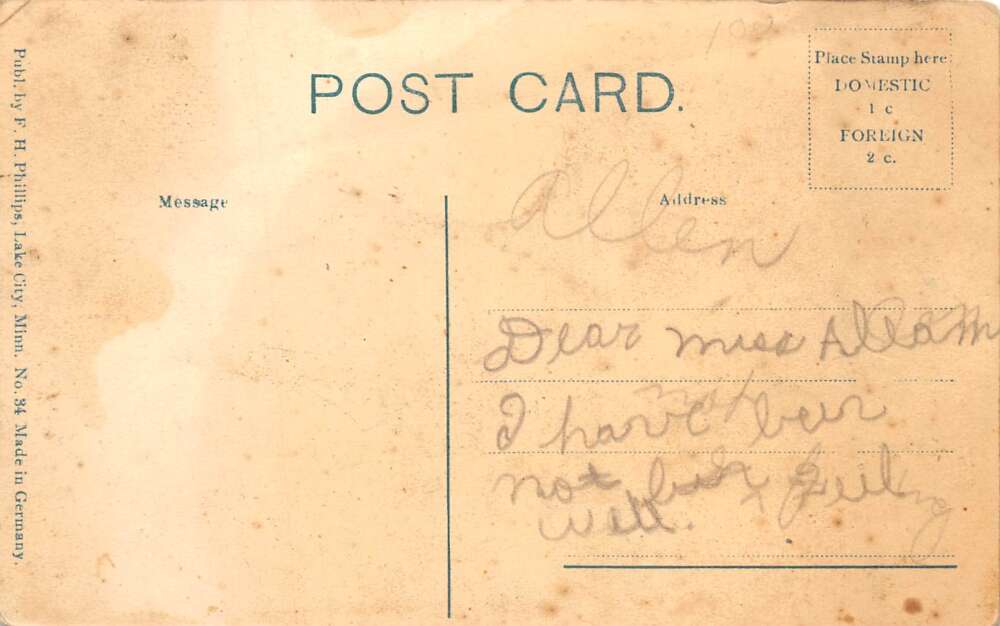 Publ. by F. H. Phillips, Lake City, Minn. No. 34 Made in Germany.
POST CARD.
Place Stamp here
DOMESTIC
1 c
FOREIGN
2 c.
Message
Address
Allen
Dear miss
not
I have been
not feeling
well.